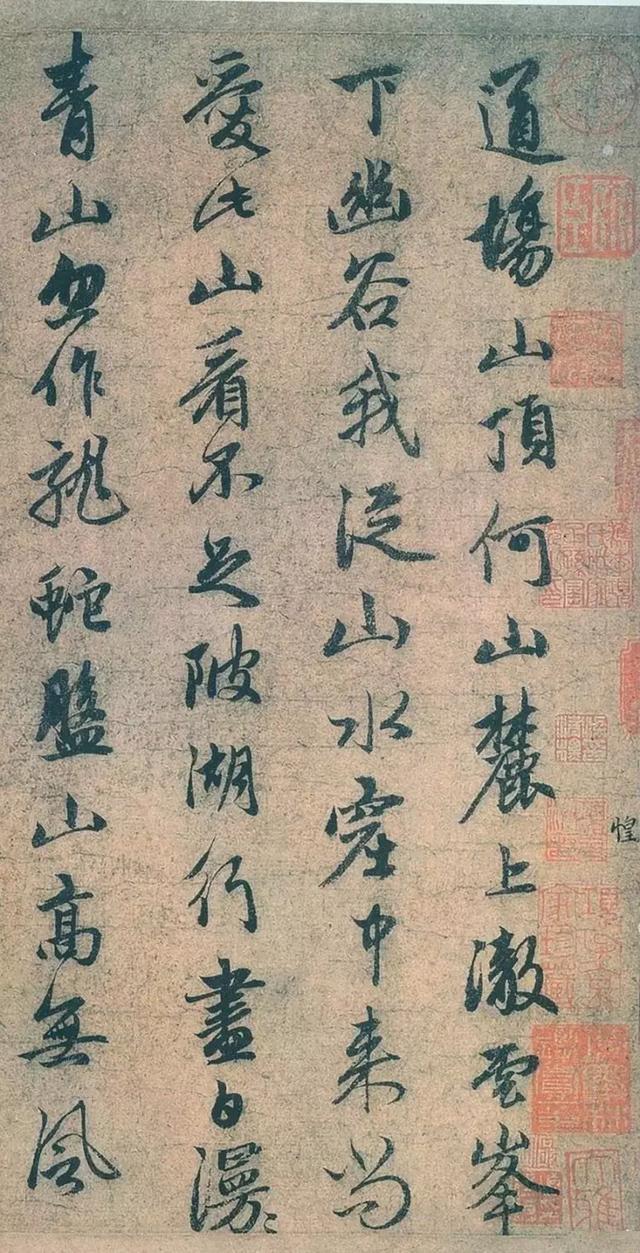 道塲山頂何山麓上澈雲峯
下幽谷我從山水窟中来尚
愛此山看不足陂湖行盡白漫〻
青山忽作龍蛇盤山高無風
惶